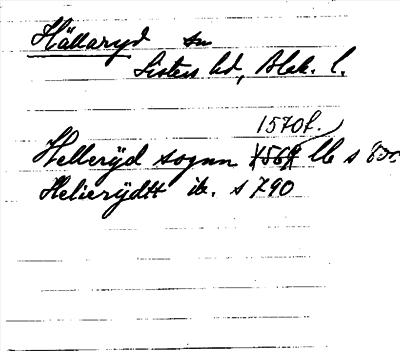 Hällaryd sn
Listers hd, Blek. l.
1570 f.
Helleryd sognn 1569 Lb s 830
Helierÿdtt ib. s 790